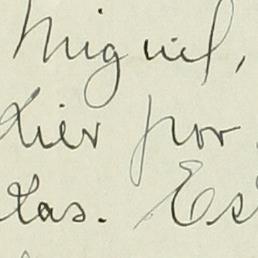 Miguel,
dier por
tas. Es